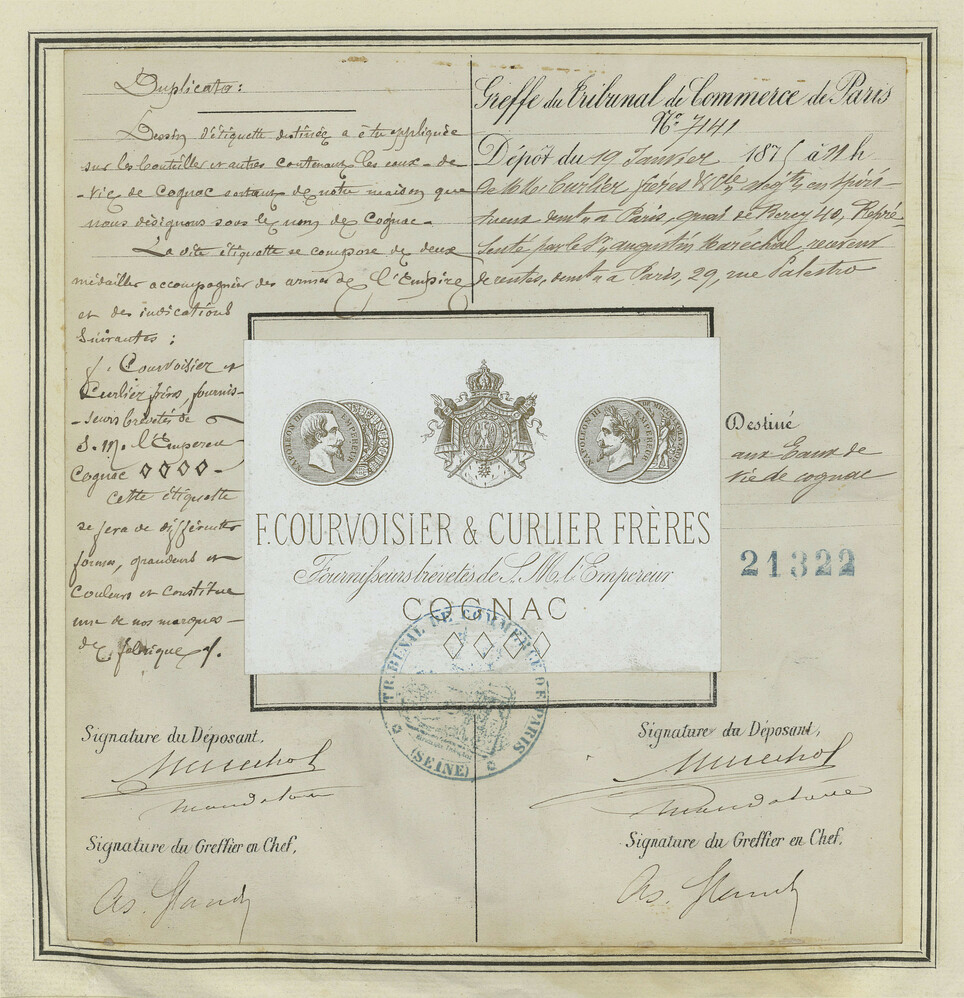 Duplicata :
Dessin d'étiquette destinée a être appliquée
sur les bouteilles et autres contenant les eaux-de-
-vie de Cognac sortant de notre maison que
nous désignons sous le nom de Cognac-
La dite étiquette se compose de deux
médailles accompagnées des armes de l'Empire
et des indications
suivantes :
F. Courvoisier et
Curlier frères, fournis-
-seurs brevetés de
S. M. l'Empereur
Cognac ◊◊◊◊-
Cette étiquette
se fera de différentes
formes, grandeurs et
couleurs et constitue
une de nos marques-
de fabrique
Greffe du Tribunal de Commerce de Paris
N° 7141
Dépôt du 19 Janvier 1875 à 11 h
de MM. Curlier frères & Cie, négts en spiri-
tueux demt à Paris, quai de Bercy 40, Repré
senté par le Sr Augustin Maréchal, receveur
de rentes, demt à Paris, 29, rue Palestro
NAPOLEON III EMPEREUR
NAPOLEON III EMPEREUR
F. COURVOISIER & CURLIER FRÈRES
Fournisseurs brevetés de S. M. l'Empereur
COGNAC
◊ ◊ ◊ ◊
Destiné
aux Eaux de
vie de cognac
21322
TRIBUNAL DE COMMERCE DE PARIS
(SEINE)
Signature du Déposant,
Marechal
mandataire
Signature du Greffier en Chef,
Signature du Déposant,
Marechal
mandataire
Signature du Greffier en Chef,